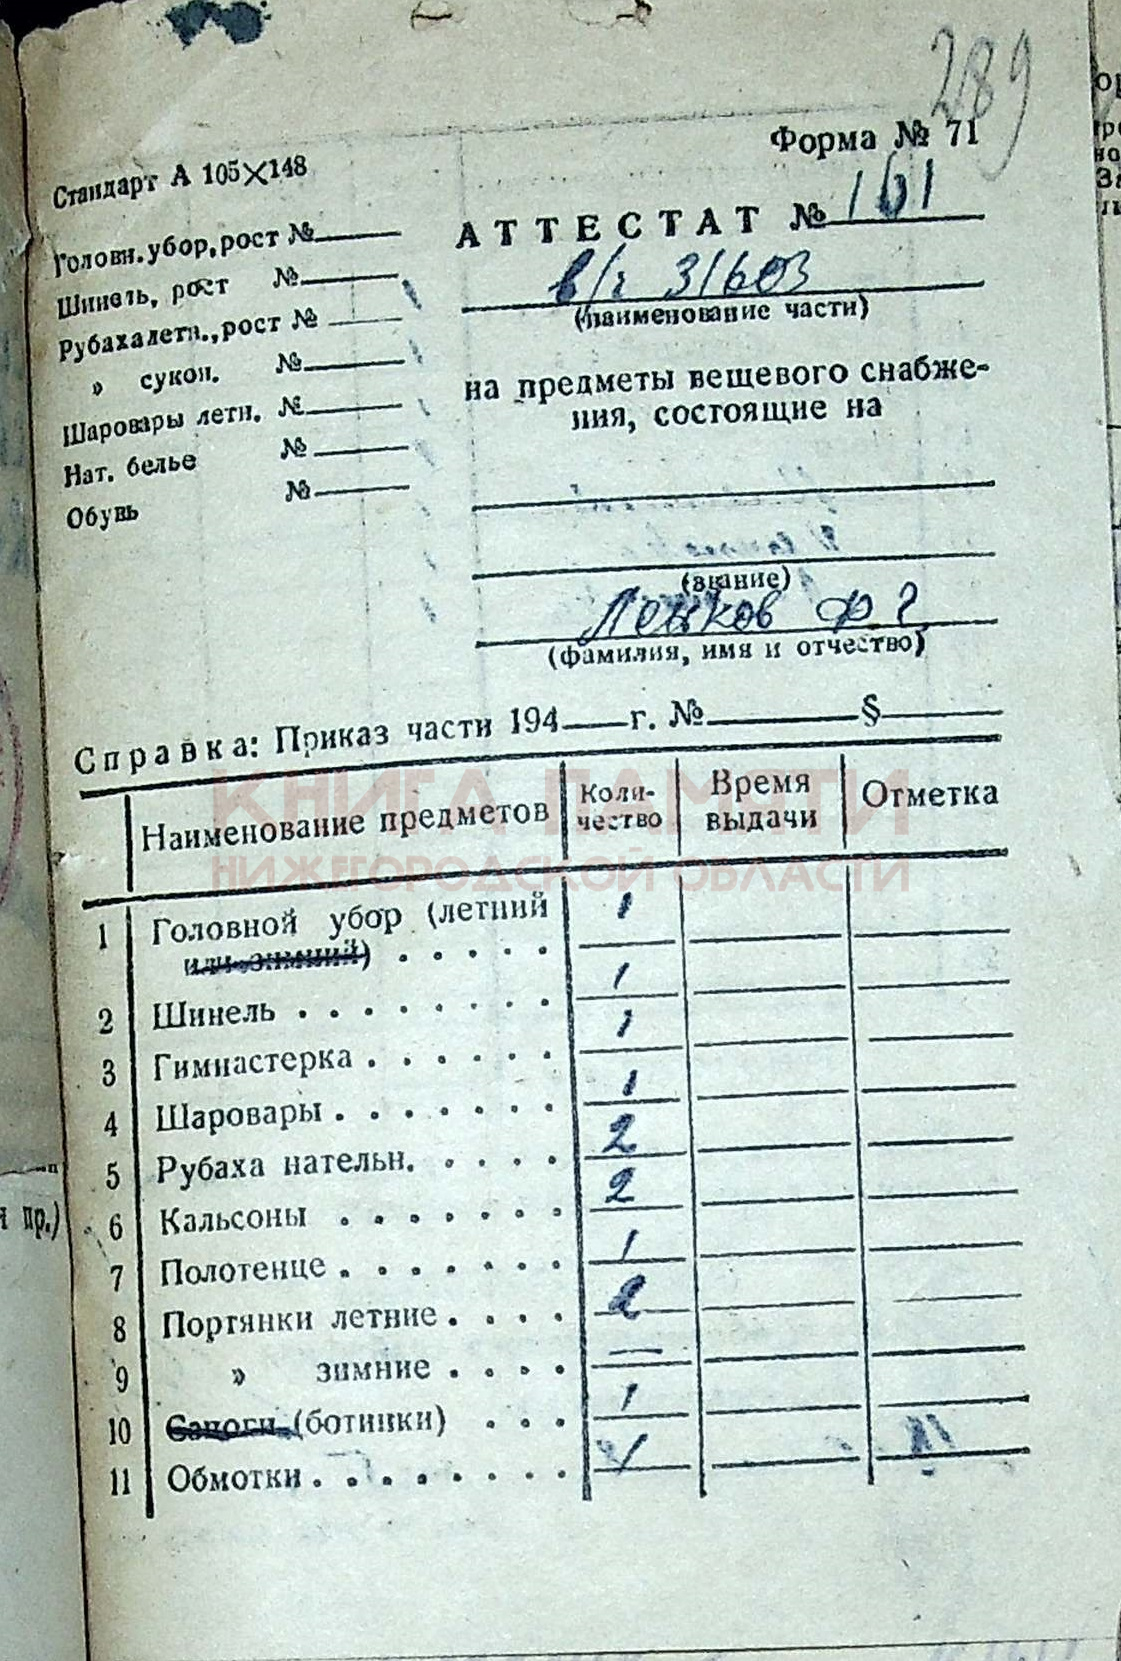 289
Форма № 71
Стандарт А 105×148
АТТЕСТАТ № 161
в/ч 31603
(наименование части)
на предметы вещевого снабже-
ния, состоящие на
(звание)
Ленков Ф. Г.
(фамилия, имя и отчество)
Головн. убор, рост №
Шинель, рост №
Рубаха летн., рост №
» сукон. №
Шаровары летн. №
Нат. белье №
Обувь №
Справка: Приказ части 194 г. № §
Наименование предметов Коли-чество Время выдачи Отметка
1 Головной убор (летний 1
или зимний) . . . . .
2 Шинель . . . . . . . . 1
3 Гимнастерка . . . . . . 1
4 Шаровары . . . . . . . 1
5 Рубаха нательн. . . . . 2
6 Кальсоны . . . . . . . 2
7 Полотенце . . . . . . . 1
8 Портянки летние . . . . 2
9 » зимние . . . . —
10 Сапоги (ботинки) . . . 1
11 Обмотки . . . . . . . . 1
КНИГА ПАМЯТИ
НИЖЕГОРОДСКОЙ ОБЛАСТИ
и пр.)